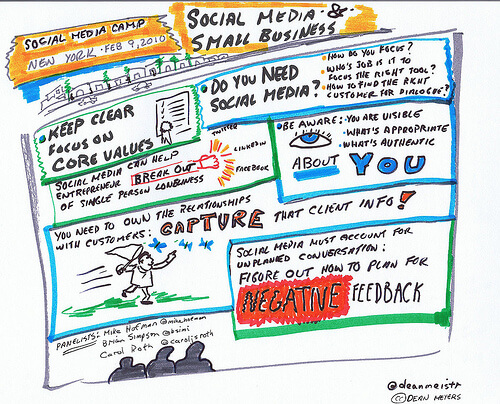 SOCIAL MEDIA CAMP
NEW YORK • FEB 9, 2010
SOCIAL MEDIA &
SMALL BUSINESS
• DO YOU NEED
SOCIAL MEDIA?
• HOW DO YOU FOCUS?
• WHO'S JOB IS IT TO
FOCUS THE RIGHT TOOL?
• HOW TO FIND THE RIGHT
CUSTOMER FOR DIALOGUE?
• KEEP CLEAR
FOCUS ON
CORE VALUES
SOCIAL MEDIA CAN HELP
ENTREPRENEUR BREAK OUT
OF SINGLE PERSON LONELINESS
TWITTER
LINKEDIN
FACEBOOK
• BE AWARE: • YOU ARE VISIBLE
• WHAT'S APPROPRIATE
• WHAT'S AUTHENTIC
ABOUT YOU
YOU NEED TO OWN THE RELATIONSHIPS
WITH CUSTOMERS: CAPTURE THAT CLIENT INFO!
SOCIAL MEDIA MUST ACCOUNT FOR
UNPLANNED CONVERSATION:
FIGURE OUT HOW TO PLAN FOR
NEGATIVE FEEDBACK
PANELISTS: Mike Hofman @mikehofman
Brian Simpson @bsimi
Carol Roth @caroljsroth
@deanmeistr
(cc) DEAN MEYERS